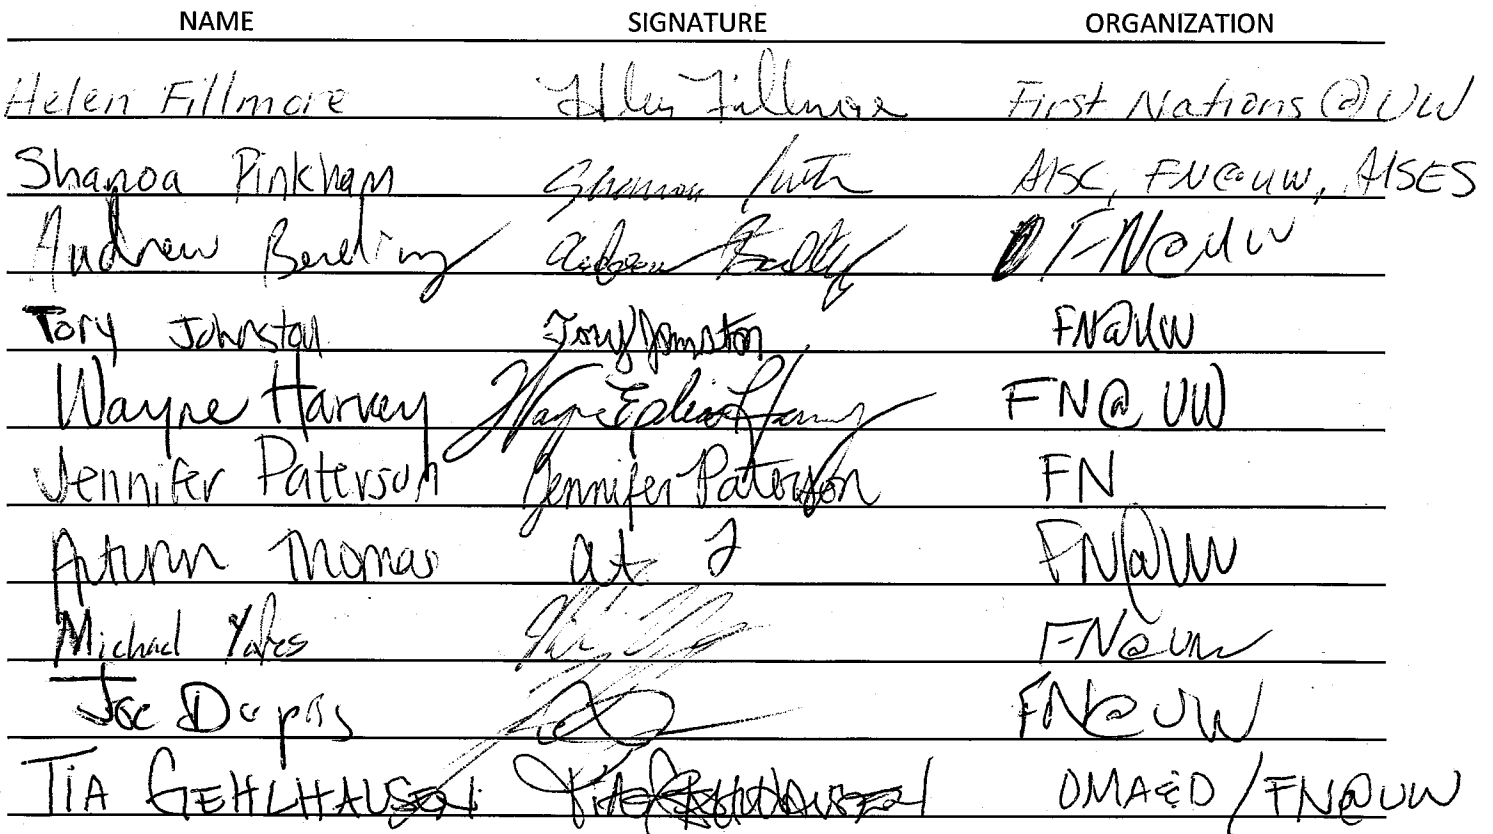 NAME SIGNATURE ORGANIZATION
Helen Fillmore Helen Fillmore First Nations @ UW
Shanoa Pinkham AISC, FN@UW, AISES
Andrew FN@UW
Tory Johnston Tory Johnston FN@UW
Wayne Harvey Wayne FN@ UW
Jennifer Paterson Jennifer Paterson FN
Autumn Thomas FN@UW
Michael Yates FN@UW
Joe FN@UW
TIA GEHLHAUSEN TIA GEHLHAUSEN OMA&D / FN@UW